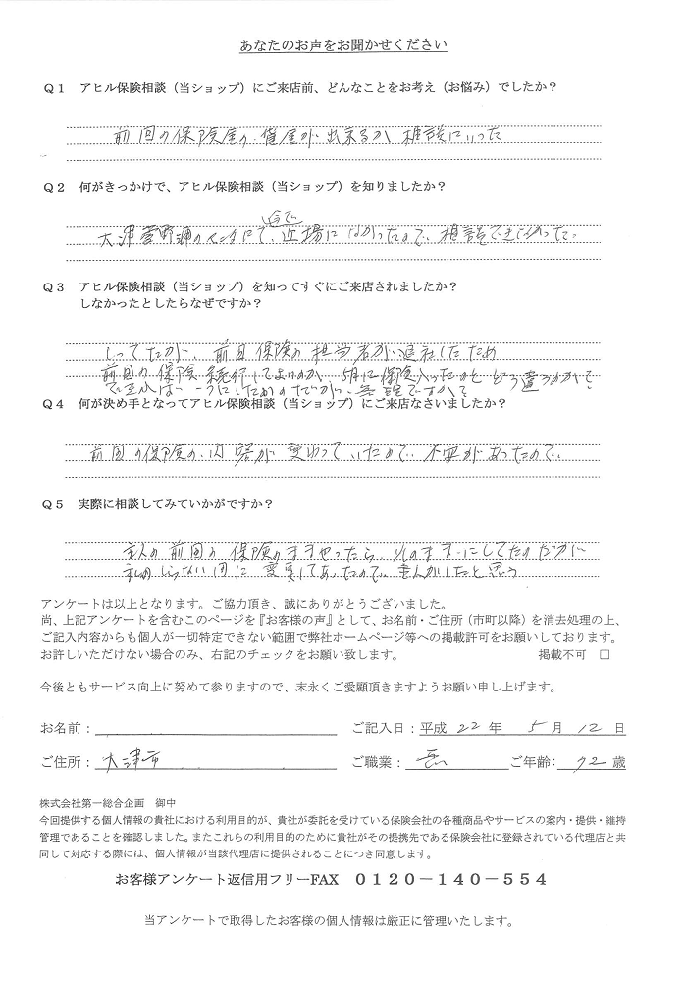 あなたのお声をお聞かせください
Q1 アヒル保険相談(当ショップ)にご来店前、どんなことをお考え(お悩み)でしたか?
前回の保険屋の、 が、出来るか 相談にいった
Q2 何がきっかけで、アヒル保険相談(当ショップ)を知りましたか?
大津 の にて、近場になかったので、相談できなかった。
Q3 アヒル保険相談(当ショップ)を知ってすぐにご来店されましたか?
しなかったとしたらなぜですか?
しってたが、前回 保険の 担当者が退社したため
前回の 保険 続行してよいのか、5月に保険入ったのと どう違うかがで
Q4 何が決め手となってアヒル保険相談(当ショップ)にご来店なさいましたか?
前回の保険の、内容が 変わって いたので、不安があったので、
Q5 実際に相談してみていかがですか?
主人の 前回の 保険のままやったら そのままにしてたのだが
私のしらない間に 変更してあったので、
アンケートは以上となります。ご協力頂き、誠にありがとうございました。
尚、上記アンケートを含むこのページを『お客様の声』として、お名前・ご住所(市町以降)を消去処理の上、
ご記入内容からも個人が一切特定できない範囲で弊社ホームページ等への掲載許可をお願いしております。
お許しいただけない場合のみ、右記のチェックをお願い致します。 掲載不可 □
今後ともサービス向上に努めて参りますので、末永くご愛顧頂きますようお願い申し上げます。
お名前: ご記入日:平成 22 年 5 月 12 日
ご住所: 大津市 ご職業: 無 ご年齢: 72 歳
株式会社第一総合企画 御中
今回提供する個人情報の貴社における利用目的が、貴社が委託を受けている保険会社の各種商品やサービスの案内・提供・維持
管理であることを確認しました。またこれらの利用目的のために貴社がその提携先である保険会社に登録されている代理店と共
同して対応する際には、個人情報が当該代理店に提供されることにつき同意します。
お客様アンケート返信用フリーFAX 0120-140-554
当アンケートで取得したお客様の個人情報は厳正に管理いたします。